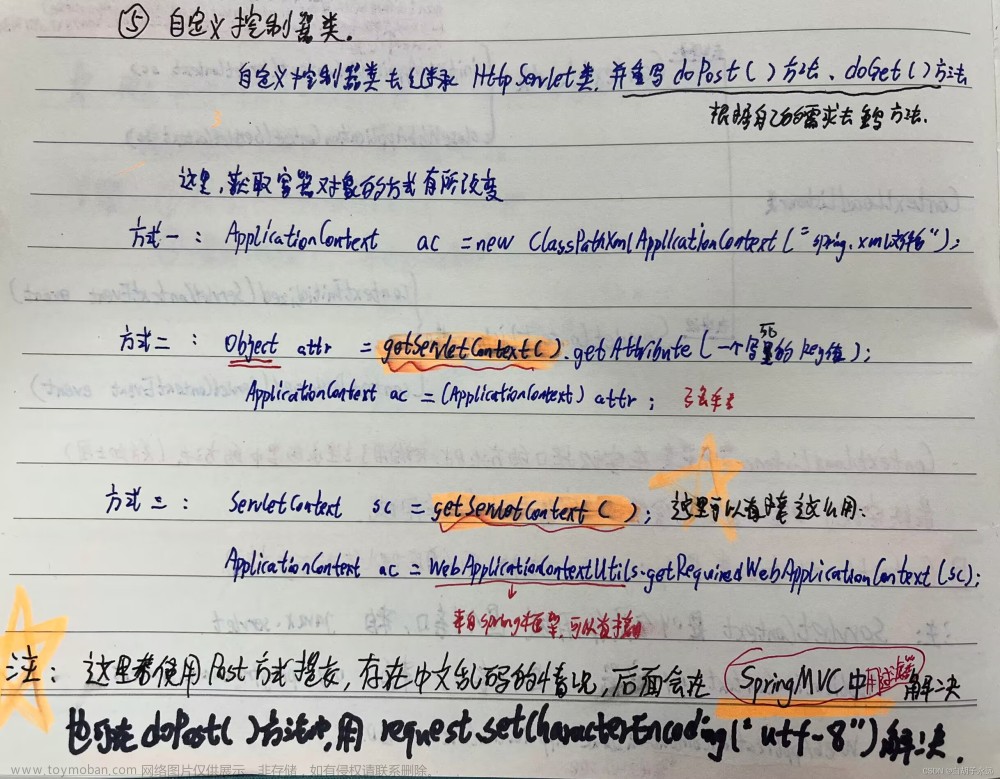 ⑤ 自定义控制器类.
自定义控制器类去继承 HttpServlet类, 并重写doPost()方法、doGet()方法
根据自己的需求去重写方法.
这里,获取容器对象的方式有所改变
方式一: ApplicationContext ac = new ClassPathXmlApplicationContext("spring.xml文件");
方式二: Object attr = getServletContext().getAttribute(一个常量的key值);
ApplicationContext ac = (ApplicationContext) attr;
方式三: ServletContext sc = getServletContext(); 这里可以直接这么用:
ApplicationContext ac = WebApplicationContextUtils.getRequiredWebApplicationContext(sc);
来自spring框架,可以直接
注: 这里若使用Post方式提交,存在中文乱码的情况,后面会在 SpringMVC中用过滤器解决
也可在doPost()方法中,用 request.setCharacterEncoding("utf-8")解决.
www.toymoban.com 网络图片仅供展示,非存储,如有侵权请联系删除。